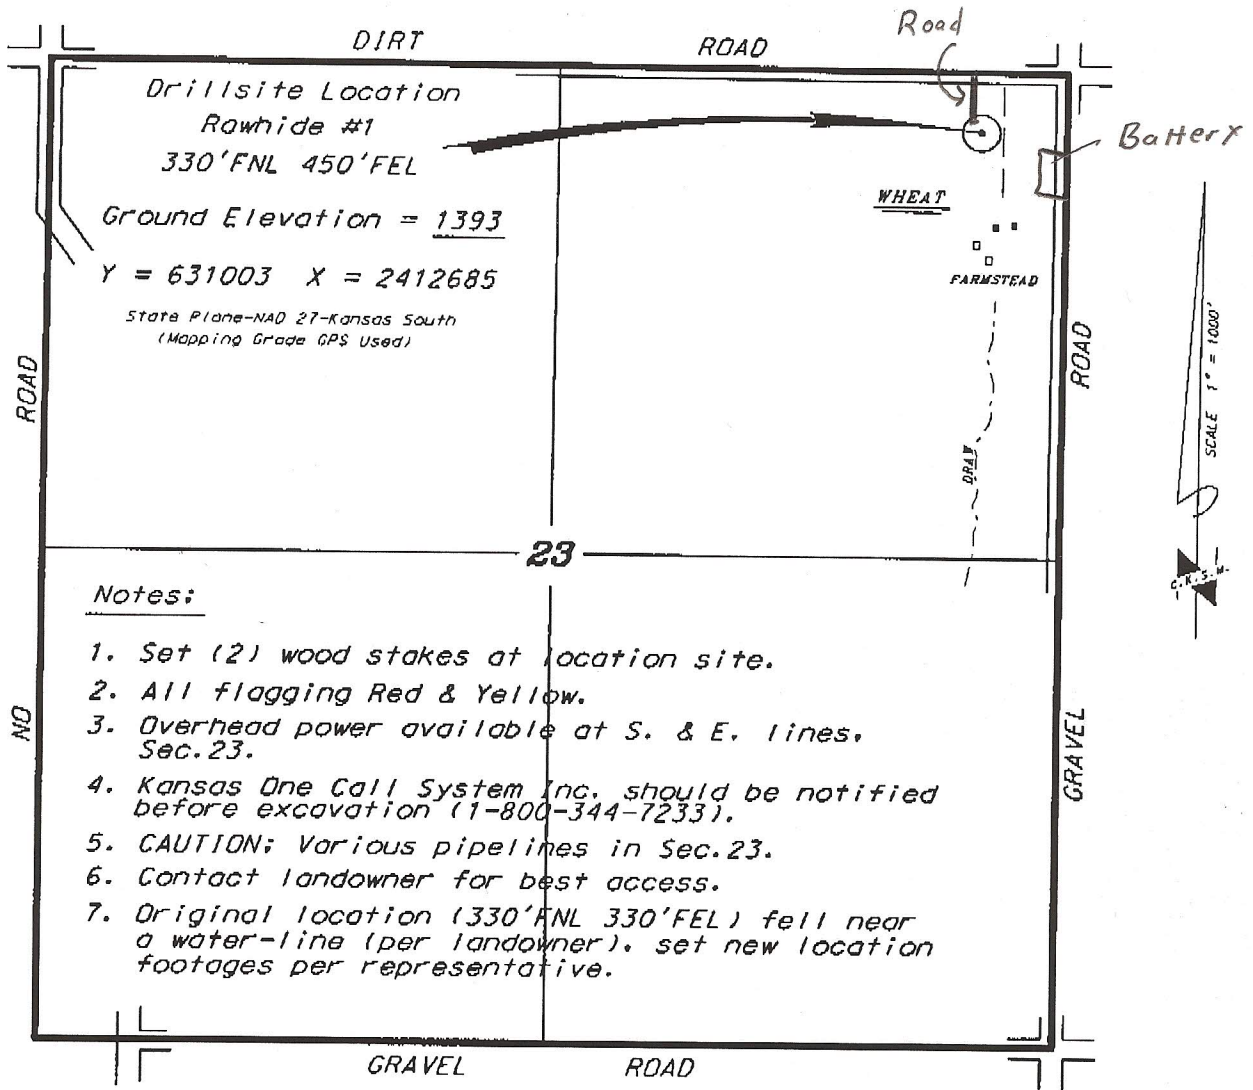 Road
DIRT ROAD
Drillsite Location
Rawhide #1
330'FNL 450'FEL
Battery
WHEAT
Ground Elevation = 1393
Y = 631003 X = 2412685
State Plane-NAD 27-Kansas South
(Mapping Grade GPS Used)
FARMSTEAD
ROAD
ROAD
SCALE 1" = 1000'
DRAW
23
C.K.S.M.
Notes:
1. Set (2) wood stakes at location site.
2. All flagging Red & Yellow.
3. Overhead power available at S. & E. lines,
Sec.23.
NO
GRAVEL
4. Kansas One Call System Inc. should be notified
before excavation (1-800-344-7233).
5. CAUTION: Various pipelines in Sec.23.
6. Contact landowner for best access.
7. Original location (330'FNL 330'FEL) fell near
a water-line (per landowner). set new location
footages per representative.
GRAVEL ROAD